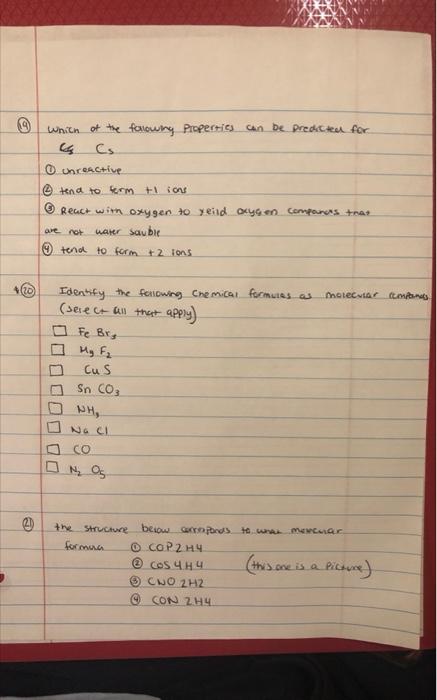 19 which of the following properties can be predicted for
Cs
① unreactive
② tend to form +1 ions
③ React with oxygen to yeild oxygen compounds that
are not water sauble
④ tend to form +2 ions
*20 Identify the following chemical formulas as molecular compounds
(select all that apply)
□ Fe Br3
□ Mg F2
□ Cu S
□ Sn CO3
□ NH3
□ Na Cl
□ CO
□ N2 O5
21 the structure below corresponds to what molecular
formula ① COP2H4
② COS4H4 (this one is a Picture)
③ CNO2H2
④ CON2H4